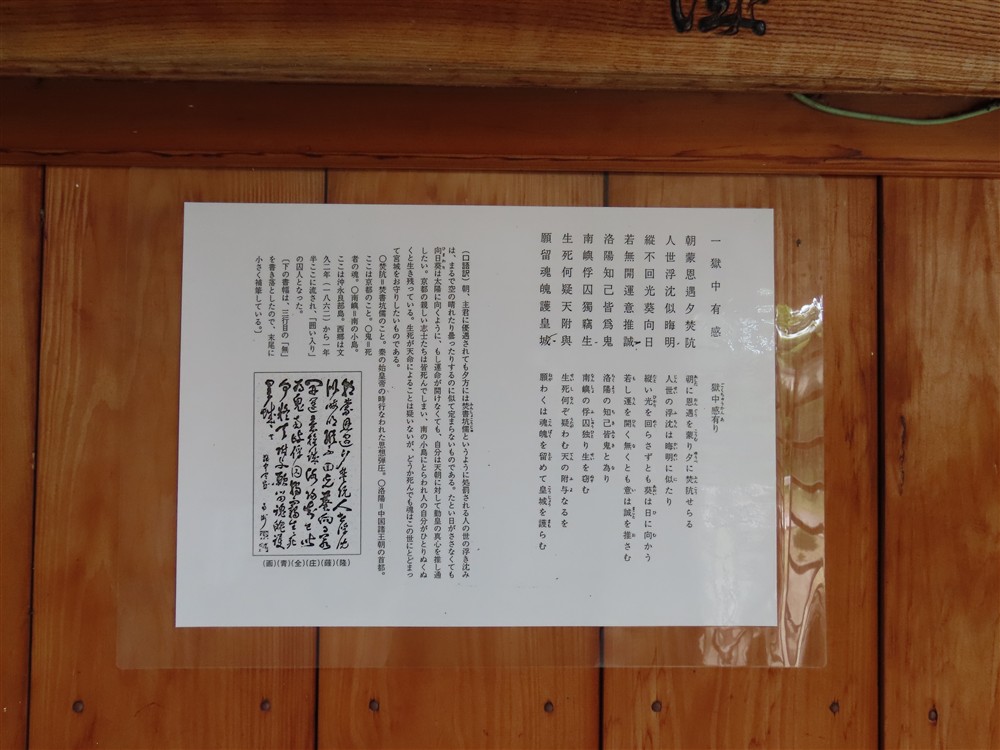 一 獄中有感
朝蒙恩遇夕焚阬
人世浮沈似晦明
縦不回光葵向日
若無開運意推誠
洛陽知己皆爲鬼
南嶼俘囚獨竊生
生死何疑天附與
願留魂魄護皇城
獄中感有り
朝に恩遇を蒙り夕に焚阬せらる
人世の浮沈は晦明に似たり
縦い光を回らさずとも葵は日に向かう
若し運を開く無くとも意は誠を推さむ
洛陽の知己皆鬼と為り
南嶼の俘囚独り生を窃む
生死何ぞ疑わむ天の附与なるを
願わくは魂魄を留めて皇城を護らむ
（口語訳）朝、主君に優遇されても夕方には焚書坑儒というように処罰される人の世の浮き沈み
は、まるで空の晴れたり曇ったりするのに似て定まらないものである。たとい日がささなくても
向日葵は太陽に向くように、もし運命が開けなくても、自分は天朝に対して勤皇の真心を推し通
したい。京都の親しい志士たちは皆死んでしまい、南の小島にとらわれ人の自分がひとりぬくぬ
くと生き残っている。生死が天命によることは疑いないが、どうか死んでも魂はこの世にとどまっ
て宮城をお守りしたいものである。
〇焚阬＝焚書坑儒のこと。秦の始皇帝の時行なわれた思想弾圧。〇洛陽＝中国諸王朝の首都。
ここは京都のこと。〇鬼＝死
者の魂。〇南嶼＝南の小島。
ここは沖永良部島。西郷は文
久二年（一八六二）から一年
半ここに流され、「囲い入り」
の囚人となった。
（下の書幅は、三行目の「無」
を書き落としたので、末尾に
小さく補筆している。）
（隆）（薩）（庄）（全）（青）（画）